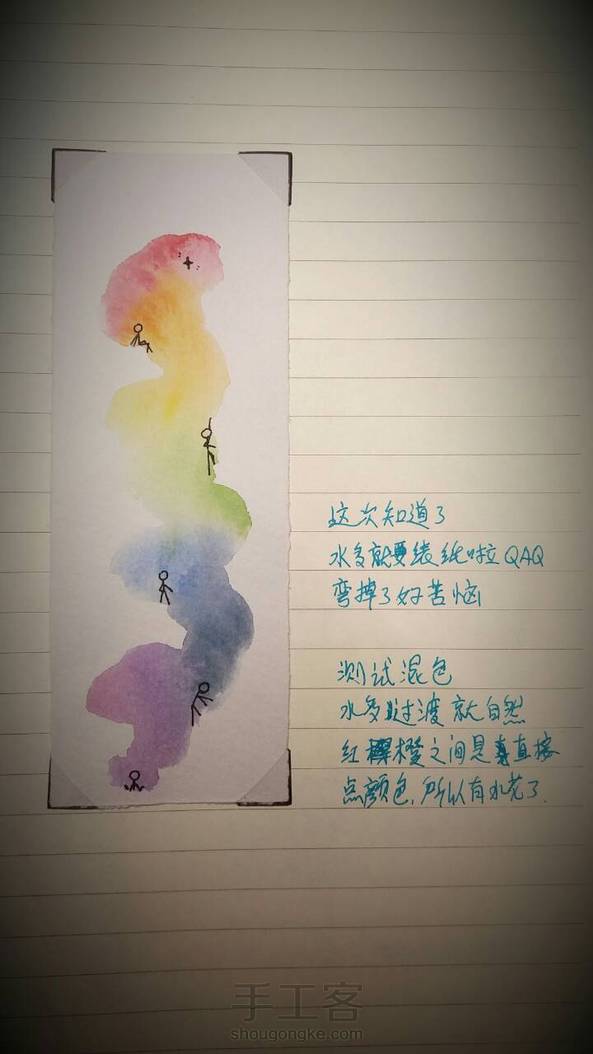 这次知道了
水多就要裱纸啦QAQ
弯掉了好苦恼
测试混色
水多过渡就自然
红橙之间是直接
点颜色,所以有水花了.
手工客
shougongke.com